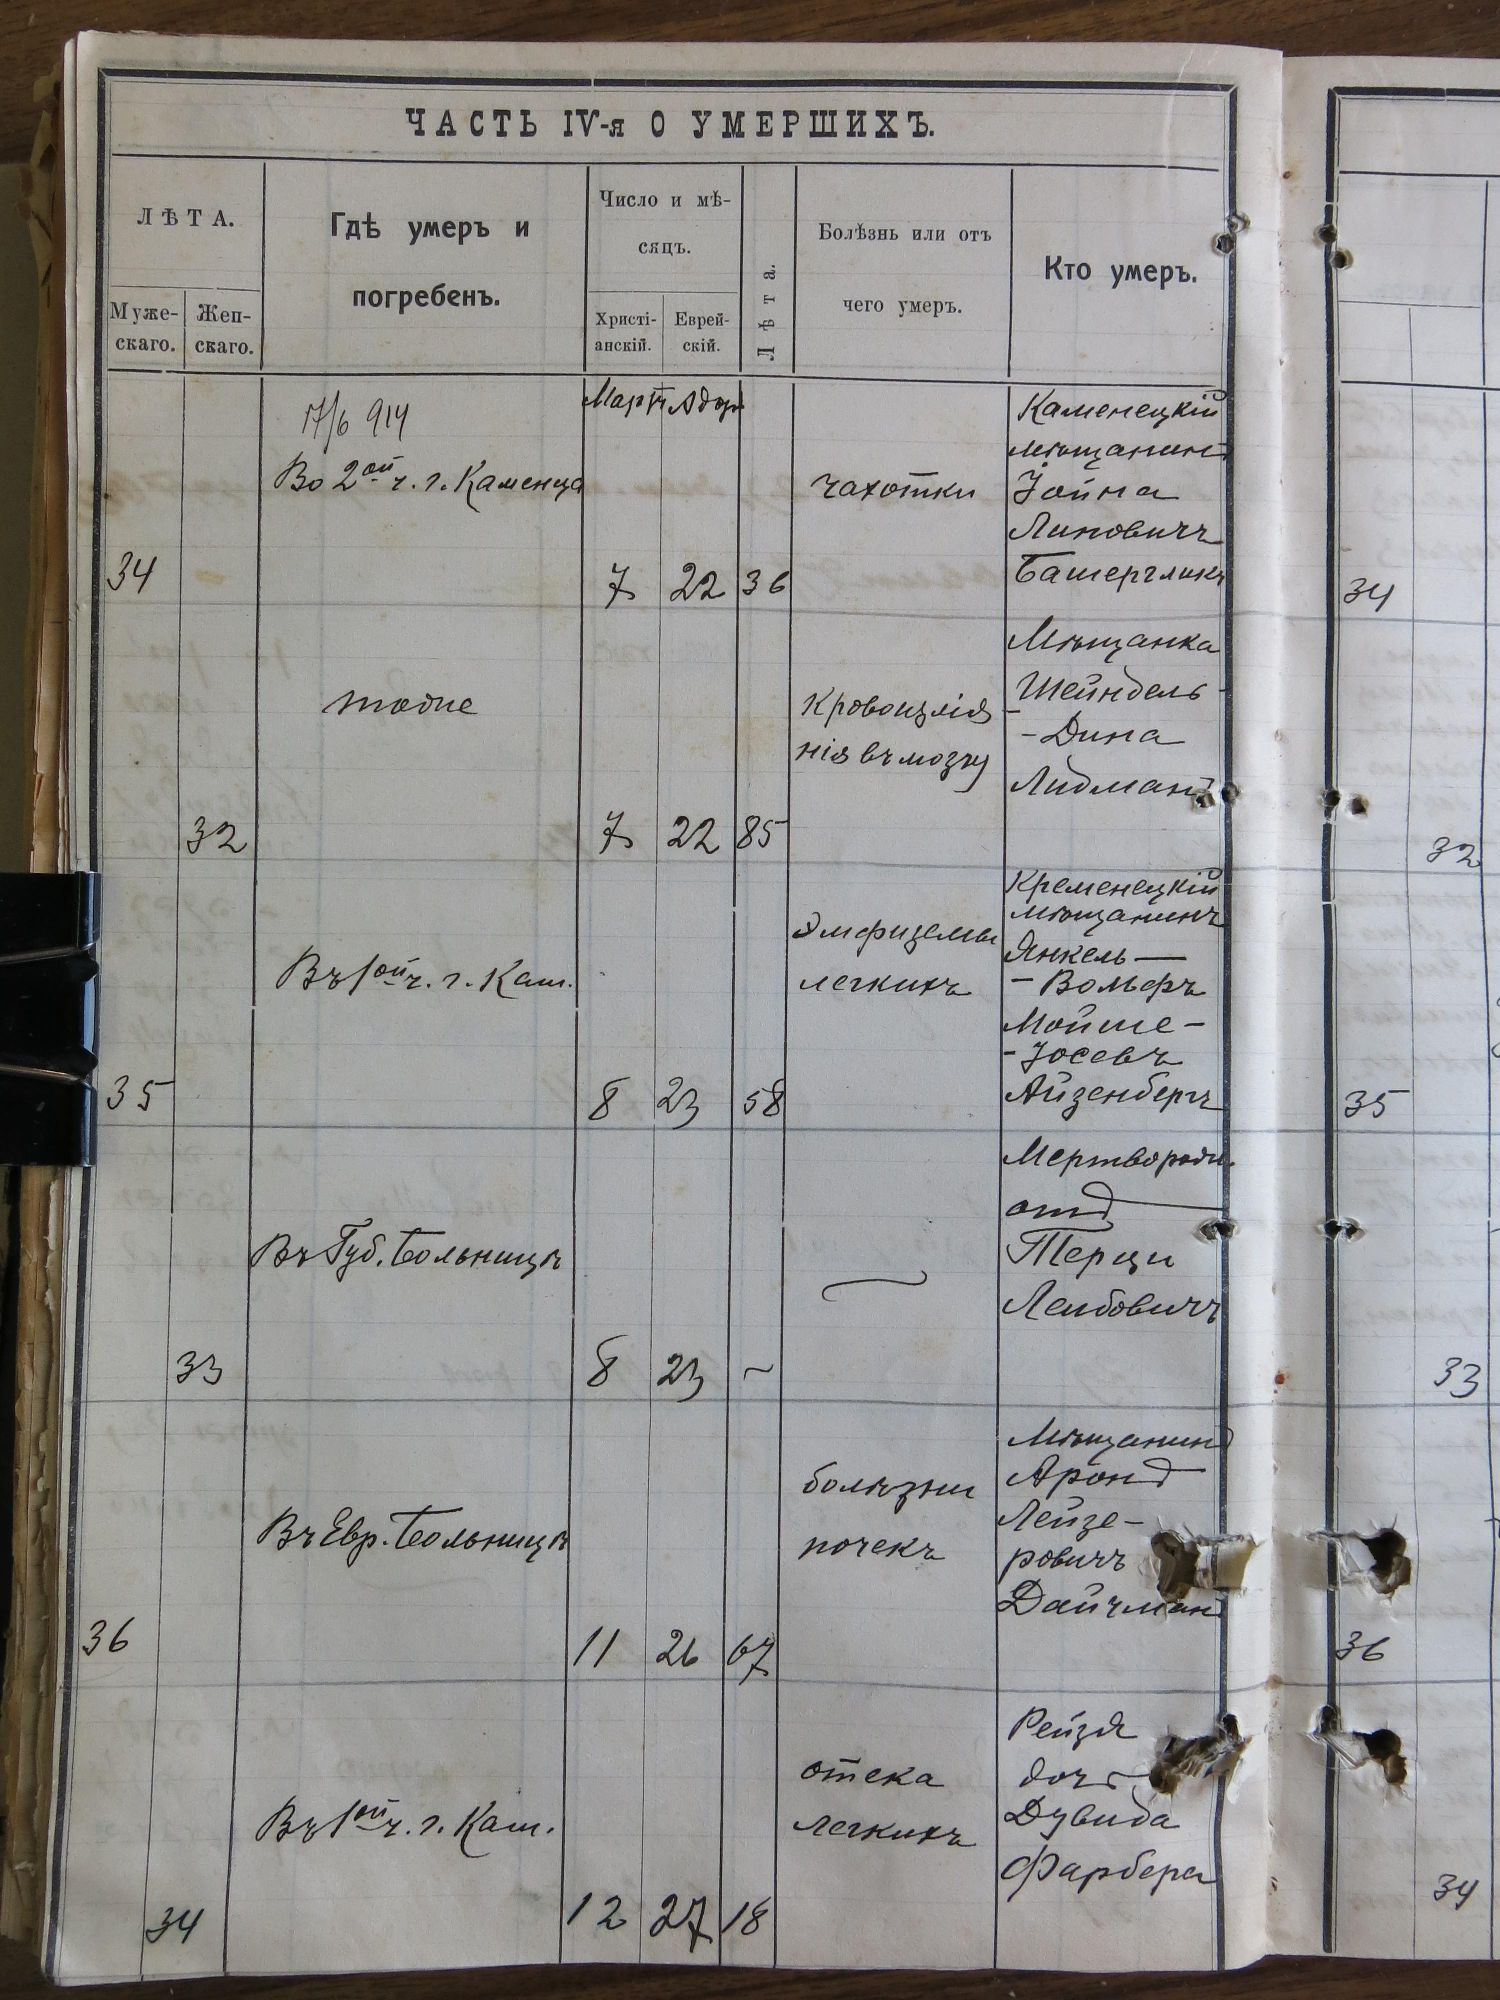 ЧАСТЬ IV-я О УМЕРШИХЪ.
ЛѢТА.
Муже-
скаго.
Жен-
скаго.
Гдѣ умеръ и
погребенъ.
Число и мѣ-
сяцъ.
Христі-
анскій.
Еврей-
скій.
Лѣта.
Болѣзнь или отъ
чего умеръ.
Кто умеръ.
17/6 914
Мартъ Адор
Во 2ой ч. г. Каменца
34
7 22 36
чахотки
Каменецкій
мѣщанинъ
Іойна
Липовичъ
34
тоже
32
7 22 85
Кровоизлія
нія въ мозгу
Мѣщанка
Шейндель-
-Дина
Лидманъ
32
Въ 1ой ч. г. Кам.
35
8 23 58
Эмфиземы
легкихъ
Кременецкій
мѣщанинъ
Янкель-
-Вольфъ
Мойше-
-Іосевъ
Айзенбергъ
35
Въ Губ. Больницѣ
33
8 23 ~
Мертворожд.
отъ
Перци
Лейбовичъ
33
Въ Евр. Больницѣ
36
11 26 67
болѣзни
почекъ
Мѣщанинъ
Аронъ
Лейзе-
ровичъ
Дайчманъ
36
Въ 1ой ч. г. Кам.
34
12 27 18
отека
легкихъ
Рейзя
дочь
Дувида
Фарбера
34